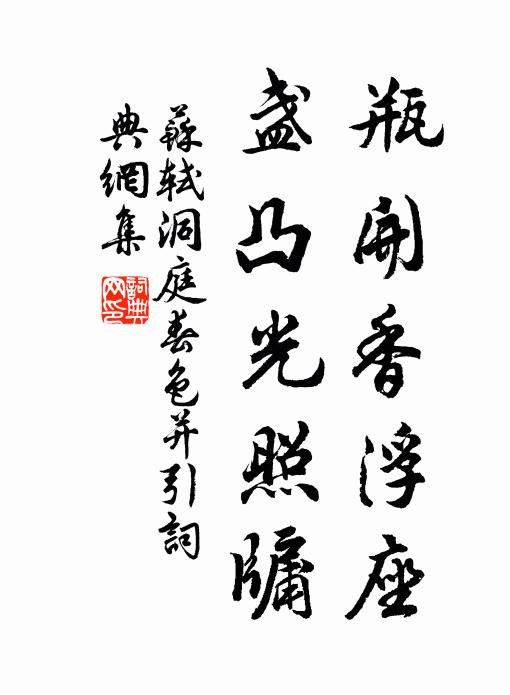 瓶開香浮座
盞凸光照牖
蘇軾洞庭春色并引詞
典網集
詞典
网印